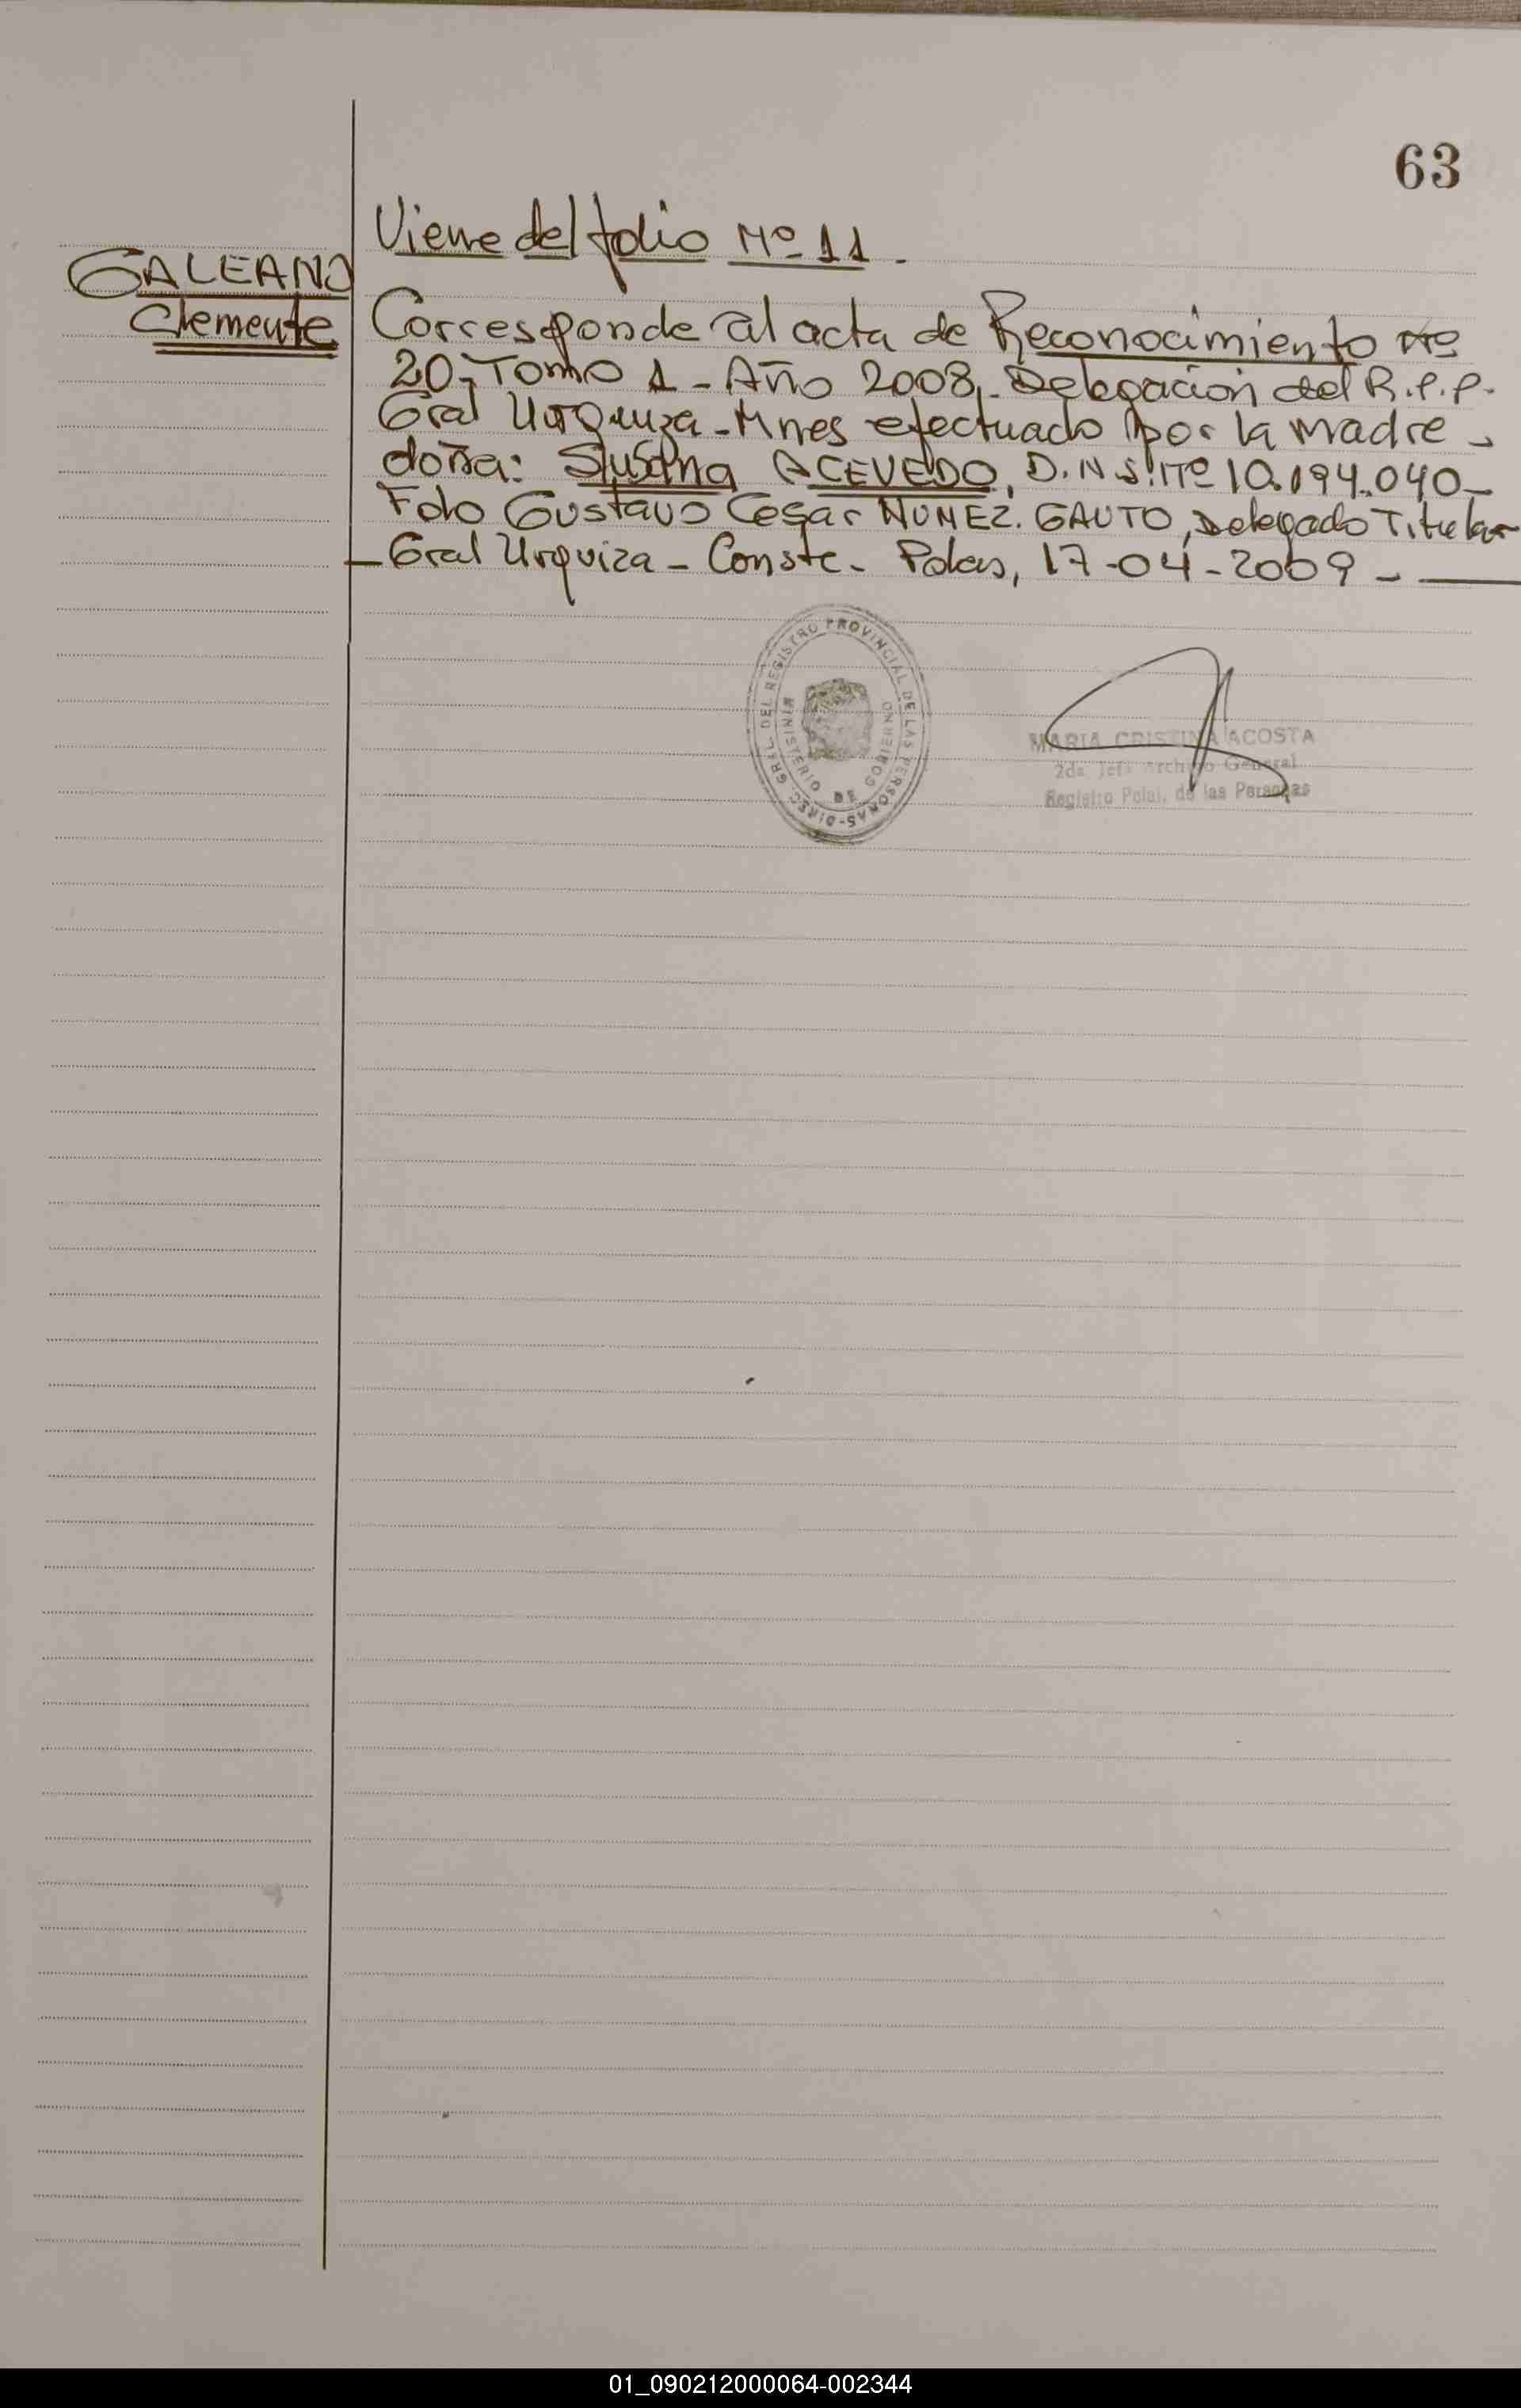 63
Viene del folio Nº 11.
GALEANO
Clemente
Corresponde al acta de Reconocimiento Nº
20-Tomo 1 - Año 2008,- Delegación del R.P.P.
Gral Urquiza - Mnes efectuado por la madre -
doña: Susana ACEVEDO, D.N.I. Nº 10.194.040-
Fdo Gustavo Cesar NUÑEZ. GAUTO, Delegado Titular
- Gral Urquiza - Conste - Pdas, 17-04-2009 -
DIREC. GRAL. DEL REGISTRO PROVINCIAL DE LAS PERSONAS-
MINISTERIO DE GOBIERNO
MARIA CRISTINA ACOSTA
2da Jefa Archivo General
Registro Pcial. de las Personas
01_090212000064-002344